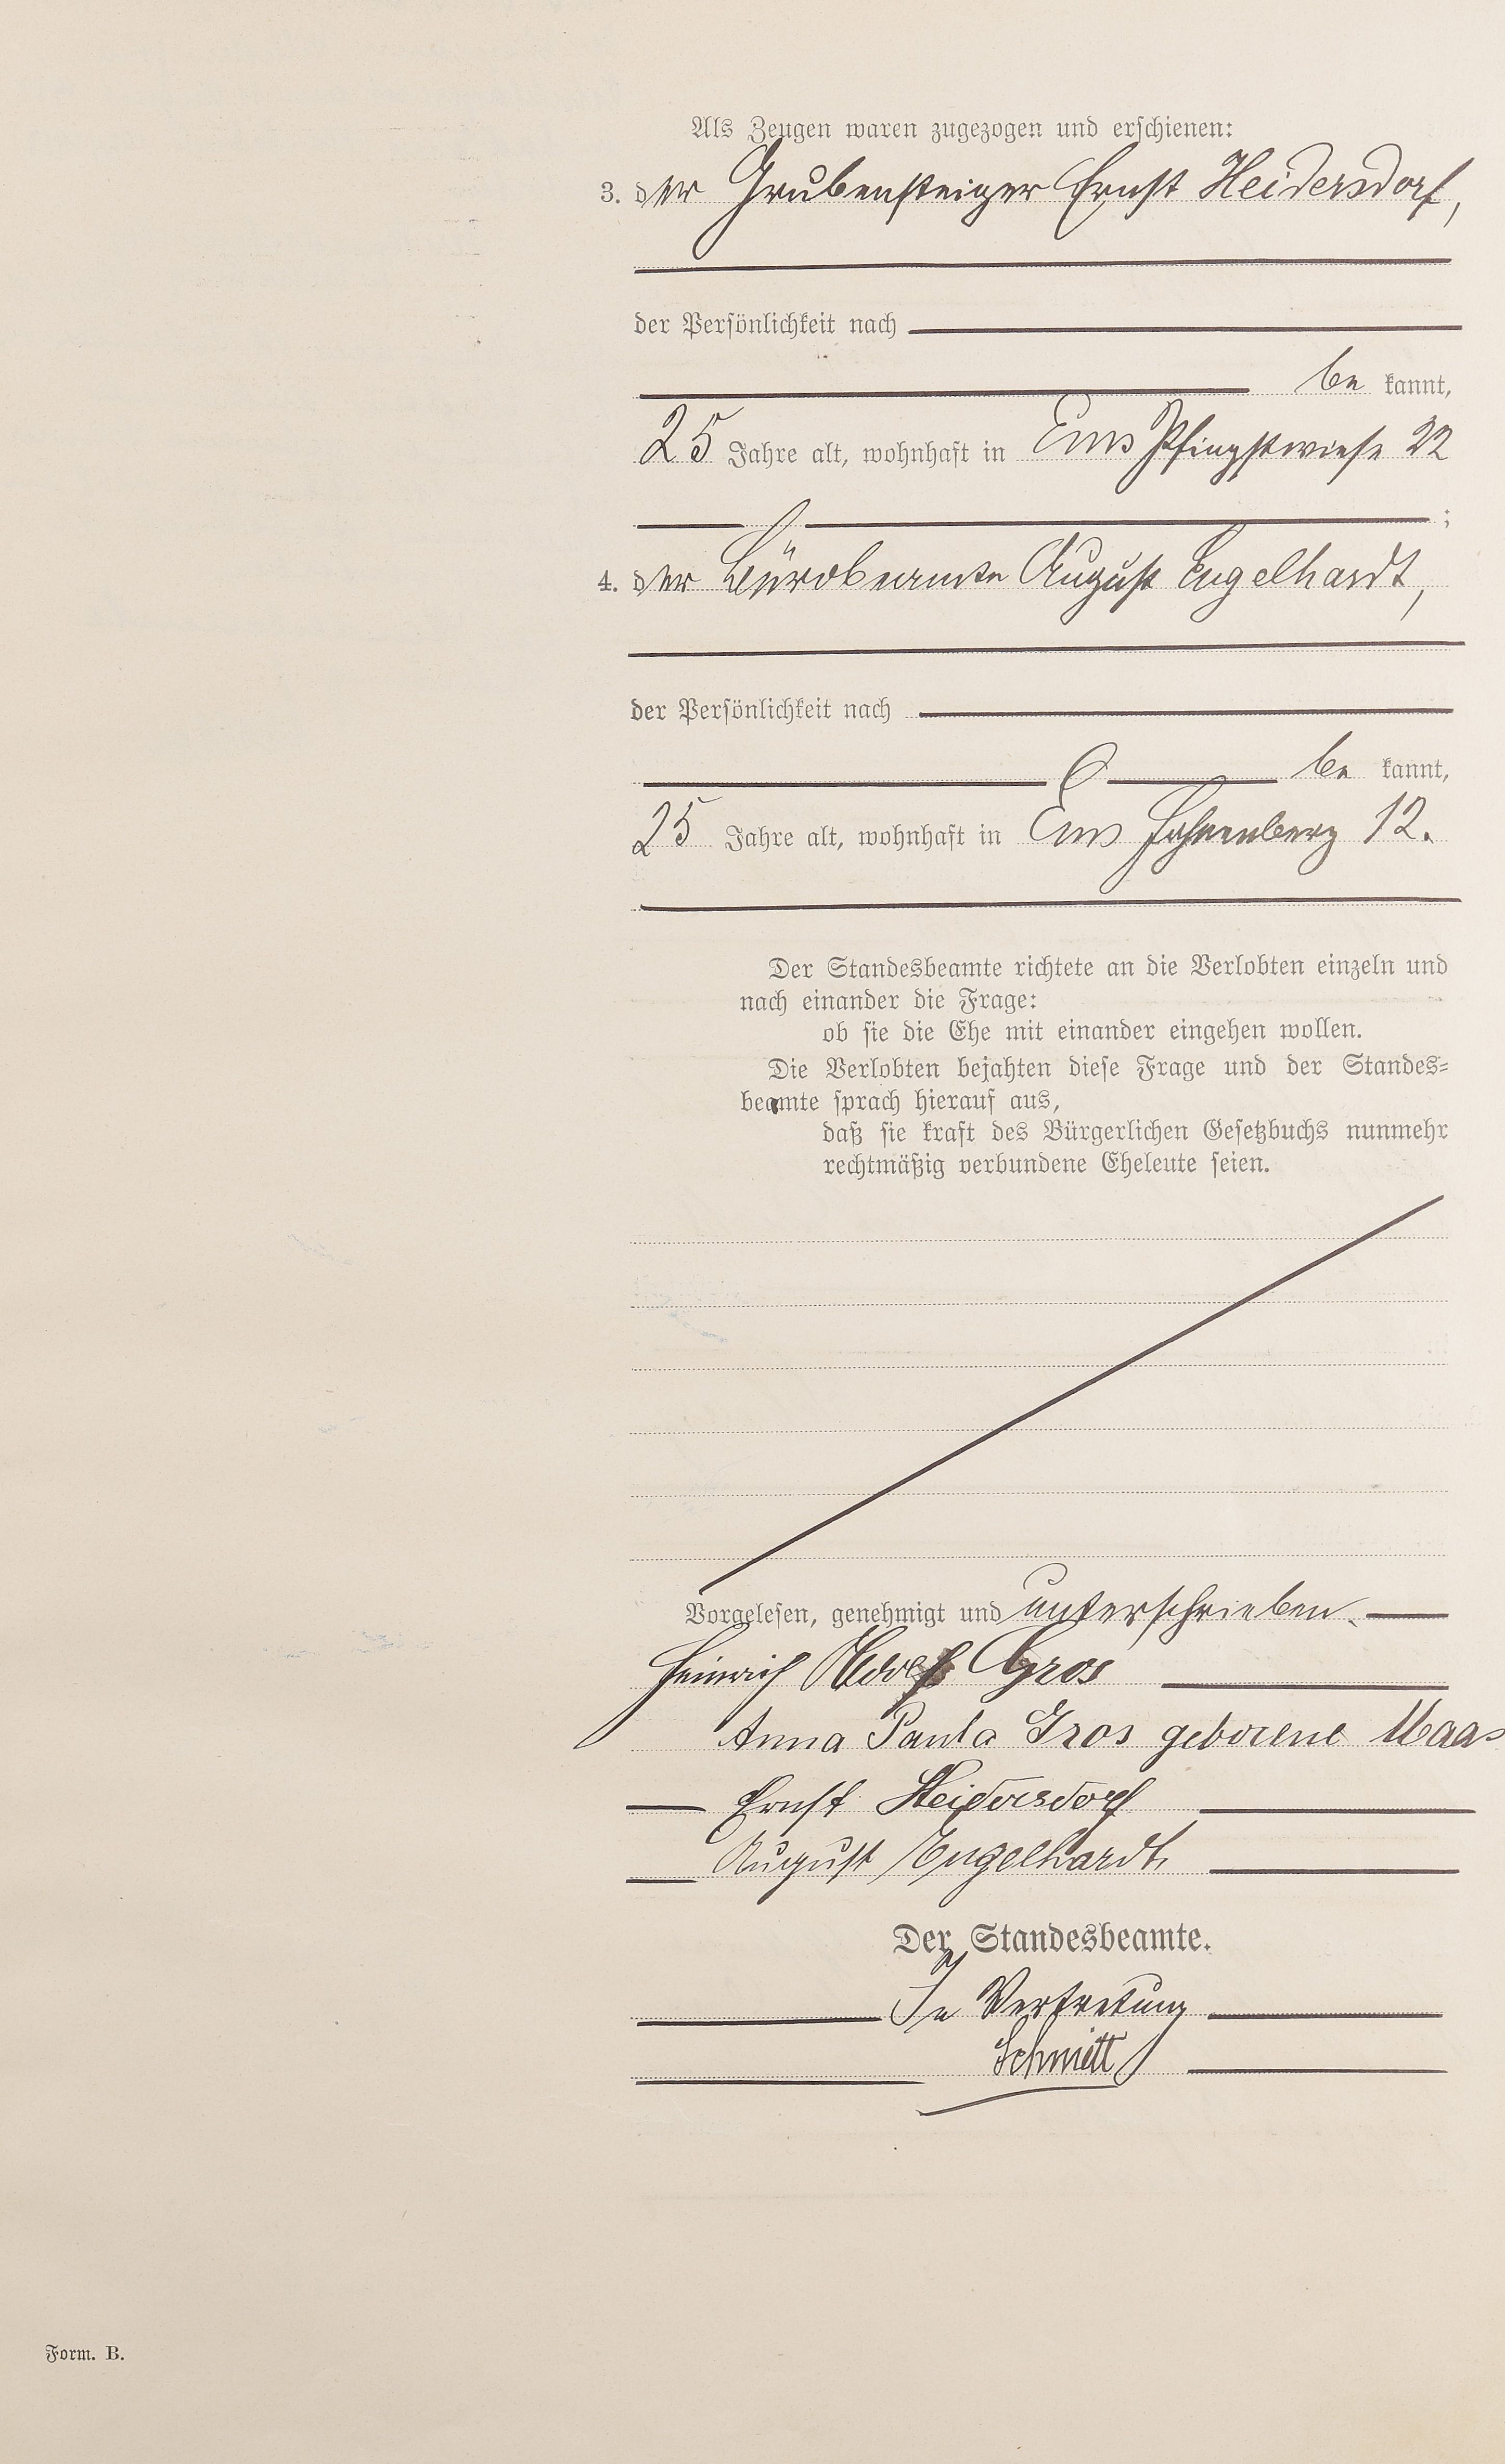 Als Zeugen waren zugezogen und erschienen:
3. der Grubensteiger Ernst Heidersdorf,
der Persönlichkeit nach
be kannt,
25 Jahre alt, wohnhaft in Ems Pfingstwiese 22
;
4. der Bürobeamte August Engelhardt,
der Persönlichkeit nach
be kannt,
25 Jahre alt, wohnhaft in Ems Hahnenberg 12.
Der Standesbeamte richtete an die Verlobten einzeln und
nach einander die Frage:
ob sie die Ehe mit einander eingehen wollen.
Die Verlobten bejahten diese Frage und der Standes=
beamte sprach hierauf aus,
daß sie kraft des Bürgerlichen Gesetzbuchs nunmehr
rechtmäßig verbundene Eheleute seien.
Vorgelesen, genehmigt und unterschrieben.
Heinrich Adolf Gros
Anna Paula Gros geborene Maas
Ernst Heidersdorf
August Engelhardt.
Der Standesbeamte.
In Vertretung
Schmitt
Form. B.